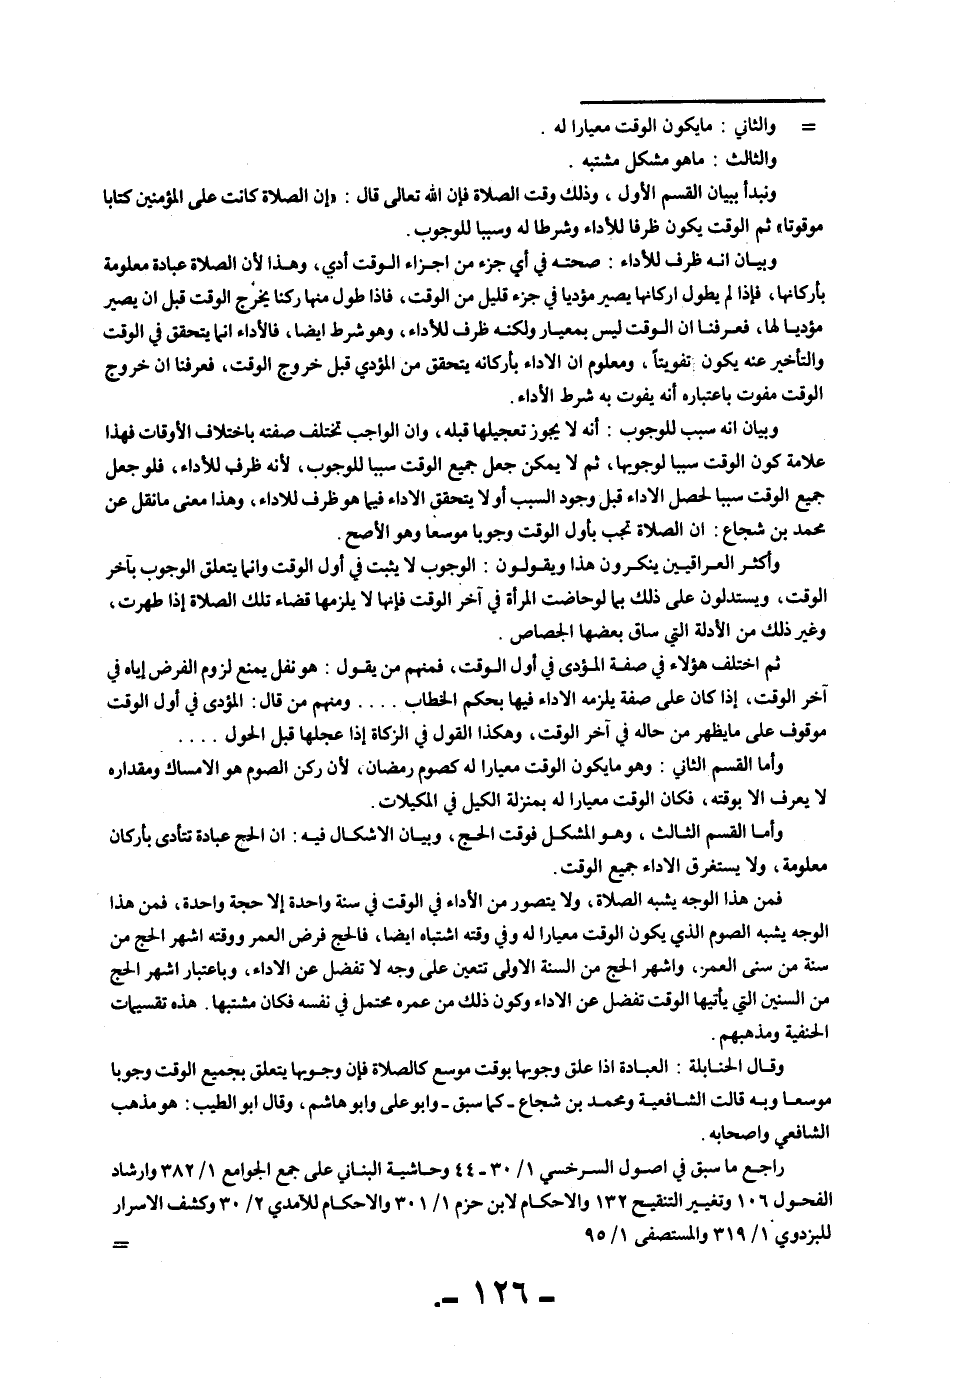 = والثاني : مايكون الوقت معيارا له .
والثالث : ماهو مشكل مشتبه .
ونبدأ ببيان القسم الأول ، وذلك وقت الصلاة فإن الله تعالى قال : «إن الصلاة كانت على المؤمنين كتابا
موقوتا» ثم الوقت يكون ظرفا للأداء وشرطا له وسببا للوجوب .
وبيان انه ظرف للأداء : صحته في أي جزء من اجزاء الوقت أدي ، وهذا لأن الصلاة عبادة معلومة
بأركانها ، فإذا لم يطول اركانها يصير مؤديا في جزء قليل من الوقت ، فاذا طول منها ركنا يخرج الوقت قبل ان يصير
مؤديا لها ، فعرفنا ان الوقت ليس بمعيار ولكنه ظرف للأداء ، وهو شرط ايضا ، فالأداء انما يتحقق في الوقت
والتأخير عنه يكون تفويتاً ، ومعلوم ان الاداء بأركانه يتحقق من المؤدي قبل خروج الوقت ، فعرفنا ان خروج
الوقت مفوت باعتباره أنه يفوت به شرط الأداء .
وبيان انه سبب للوجوب : أنه لا يجوز تعجيلها قبله ، وان الواجب تختلف صفته باختلاف الأوقات فهذا
علامة كون الوقت سببا لوجوبها ، ثم لا يمكن جعل جميع الوقت سببا للوجوب ، لأنه ظرف للأداء ، فلو جعل
جميع الوقت سببا لحصل الاداء قبل وجود السبب أو لا يتحقق الاداء فيما هو ظرف للاداء ، وهذا معنى مانقل عن
محمد بن شجاع : ان الصلاة تجب بأول الوقت وجوبا موسعا وهو الأصح .
وأكثر العراقيين ينكرون هذا ويقولون : الوجوب لا يثبت في أول الوقت وانما يتعلق الوجوب بآخر
الوقت ، ويستدلون على ذلك بما لوحاضت المرأة في آخر الوقت فإنها لا يلزمها قضاء تلك الصلاة إذا طهرت ،
وغير ذلك من الأدلة التي ساق بعضها الجصاص .
ثم اختلف هؤلاء في صفة المؤدى في أول الوقت ، فمنهم من يقول : هو نفل يمنع لزوم الفرض إياه في
آخر الوقت ، إذا كان على صفة يلزمه الاداء فيها بحكم الخطاب .... ومنهم من قال : المؤدى في أول الوقت
موقوف على مايظهر من حاله في آخر الوقت ، وهكذا القول في الزكاة إذا عجلها قبل الحول ....
وأما القسم الثاني : وهو مايكون الوقت معيارا له كصوم رمضان ، لأن ركن الصوم هو الامساك ومقداره
لا يعرف الا بوقته ، فكان الوقت معيارا له بمنزلة الكيل في المكيلات .
وأما القسم الثالث ، وهو المشكل فوقت الحج ، وبيان الاشكال فيه : ان الحج عبادة تتأدى بأركان
معلومة ، ولا يستغرق الاداء جميع الوقت .
فمن هذا الوجه يشبه الصلاة ، ولا يتصور من الأداء في الوقت في سنة واحدة إلا حجة واحدة ، فمن هذا
الوجه يشبه الصوم الذي يكون الوقت معيارا له وفي وقته اشتباه ايضا ، فالحج فرض العمر ووقته اشهر الحج من
سنة من سنى العمر ، واشهر الحج من السنة الاولى تتعين على وجه لا تفضل عن الاداء ، وباعتبار اشهر الحج
من السنين التي يأتيها الوقت تفضل عن الاداء وكون ذلك من عمره محتمل في نفسه فكان مشتبها . هذه تقسيمات
الحنفية ومذهبهم .
وقال الحنابلة : العبادة اذا علق وجوبها بوقت موسع كالصلاة فإن وجوبها يتعلق بجميع الوقت وجوبا
موسعا وبه قالت الشافعية ومحمد بن شجاع - كما سبق - وابو على وابو هاشم ، وقال ابو الطيب : هو مذهب
الشافعي واصحابه .
راجع ما سبق في اصول السرخسي ١/ ٣٠ - ٤٤ وحاشية البناني على جمع الجوامع ١/ ٣٨٢ وارشاد
الفحول ١٠٦ وتغيير التنقيح ١٣٢ والاحكام لابن حزم ١/ ٣٠١ والاحكام للآمدي ٢/ ٣٠ وكشف الاسرار
للبزدوي ١/ ٣١٩ والمستصفى ١/ ٩٥ =
- ١٢٦ -